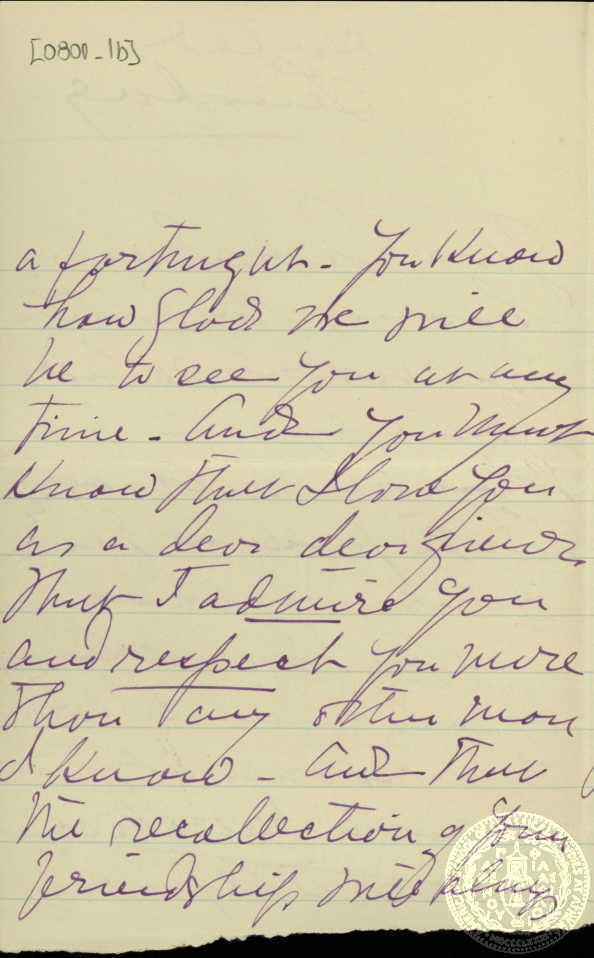 [0801_1b]
a fortnight - You Know
how glad we will
be to see you at any
time - And you must
Know that I love you
as a dear dear friend,
that I admire you
and respect you more
than any other man
I know - And that
the recollection of your
friendship will always